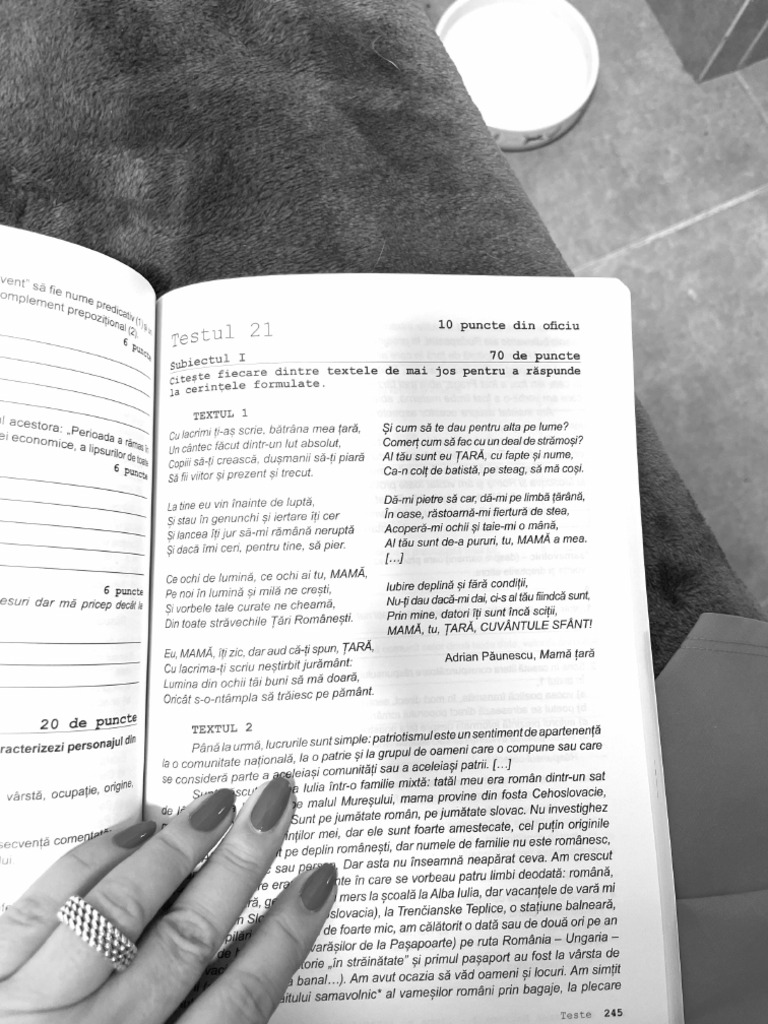 vent" să fie nume predicativ (1) și un
omplement prepozițional (2).
6 puncte
l acestora: „Perioada a rămas în
ei economice, a lipsurilor de toate
6 puncte
6 puncte
esuri dar mă pricep decât la
20 de puncte
racterizezi personajul din
vârstă, ocupație, origine,
secvență comentată
lui.
Testul 21
10 puncte din oficiu
Subiectul I
70 de puncte
Citește fiecare dintre textele de mai jos pentru a răspunde
la cerințele formulate.
TEXTUL 1
Cu lacrimi ți-aș scrie, bătrâna mea țară,
Un cântec făcut dintr-un lut absolut,
Copiii să-ți crească, dușmanii să-ți piară
Să fii viitor și prezent și trecut.
La tine eu vin înainte de luptă,
Și stau în genunchi și iertare îți cer
Și lancea îți jur să-mi rămână neruptă
Și dacă îmi ceri, pentru tine, să pier.
Ce ochi de lumină, ce ochi ai tu, MAMĂ,
Pe noi în lumină și milă ne crești,
Și vorbele tale curate ne cheamă,
Din toate străvechile Țări Românești.
Eu, MAMĂ, îți zic, dar aud că-ți spun, ȚARĂ,
Cu lacrima-ți scriu neștirbit jurământ:
Lumina din ochii tăi buni să mă doară,
Oricât s-o-ntâmpla să trăiesc pe pământ.
Și cum să te dau pentru alta pe lume?
Comerț cum să fac cu un deal de strămoși?
Al tău sunt eu ȚARĂ, cu fapte și nume,
Ca-n colț de batistă, pe steag, să mă coși.
Dă-mi pietre să car, dă-mi pe limbă țărână,
În oase, răstoarnă-mi fiertură de stea,
Acoperă-mi ochii și taie-mi o mână,
Al tău sunt de-a pururi, tu, MAMĂ a mea.
[…]
Iubire deplină și fără condiții,
Nu-ți dau dacă-mi dai, ci-s al tău fiindcă sunt,
Prin mine, datori îți sunt încă sciții,
MAMĂ, tu, ȚARĂ, CUVÂNTULE SFÂNT!
Adrian Păunescu, Mamă țară
TEXTUL 2
Până la urmă, lucrurile sunt simple: patriotismul este un sentiment de apartenență
la o comunitate națională, la o patrie și la grupul de oameni care o compune sau care
se consideră parte a aceleiași comunități sau a aceleiași patrii. […]
Iulia într-o familie mixtă: tatăl meu era român dintr-un sat
de pe malul Mureșului, mama provine din fosta Cehoslovacie,
Sunt pe jumătate român, pe jumătate slovac. Nu investighez
ților mei, dar ele sunt foarte amestecate, cel puțin originile
t pe deplin românești, dar numele de familie nu este românesc,
c sau Dar asta nu înseamnă neapărat ceva. Am crescut
în care se vorbeau patru limbi deodată: română,
mers la școală la Alba Iulia, dar vacanțele de vară mi
slovacia), la Trenčianske Teplice, o stațiune balneară,
de foarte mic, am călătorit o dată sau de două ori pe an
varășilor de la Pașapoarte) pe ruta România – Ungaria –
torie „în străinătate" și primul pașaport au fost la vârsta de
banal…). Am avut ocazia să văd oameni și locuri. Am simțit
aitului samavolnic* al vameșilor români prin bagaje, la plecare
Teste 245